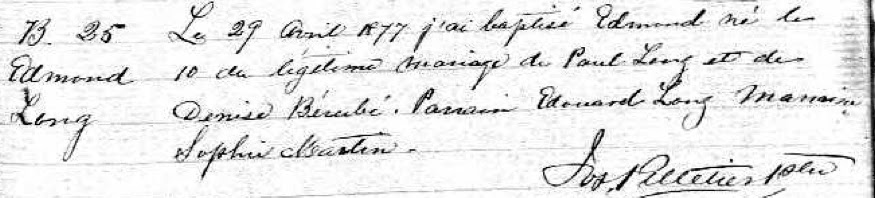 B. 25
Edmond
Long
Le 29 Avril 1877 j'ai baptisé Edmond né le
10 du légitime mariage de Paul Long et de
Denise Bérubé. Parrain Edouard Long Marraine
Sophie Martin.
Jos. Pelletier Ptre